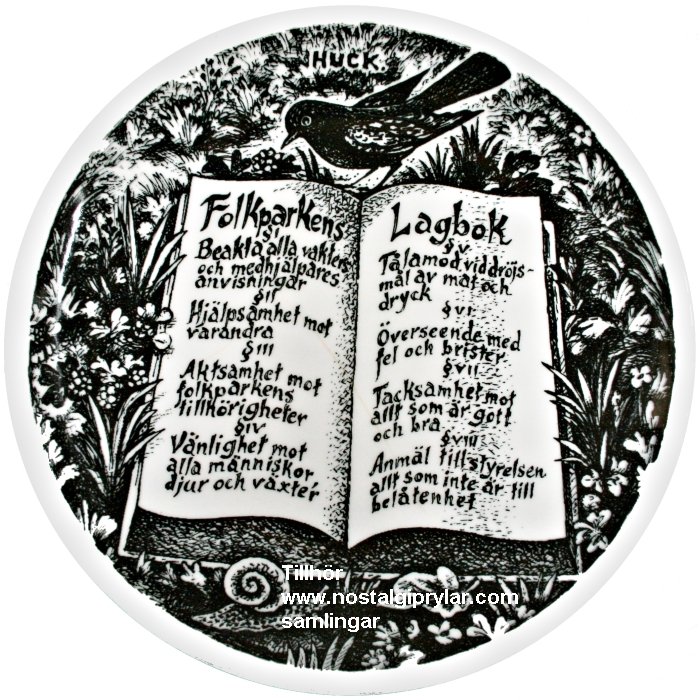 HUCK.
Folkparkens
§I
Beakta alla vakters
och medhjälpares
anvisningar
§II
Hjälpsamhet mot
varandra
§III
Aktsamhet mot
folkparkens
tillhörigheter
§IV
Vänlighet mot
alla människor
djur och växter
Lagbok
§V
Tålamod vid dröjs-
mål av mat och
dryck
§VI
Överseende med
fel och brister
§VII
Tacksamhet mot
allt som är gott
och bra
§VIII
Anmäl till styrelsen
allt som inte är till
belåtenhet
Tillhör
www.nostalgiprylar.com
samlingar